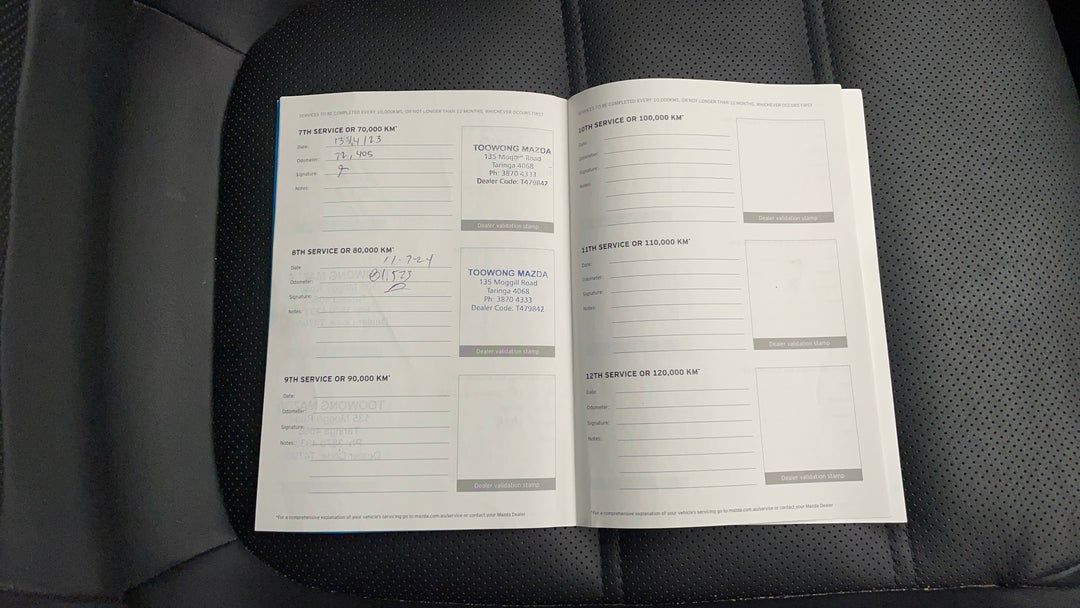 SERVICES TO BE COMPLETED EVERY 10,000KMS, OR NOT LONGER THAN 12 MONTHS, WHICHEVER OCCURS FIRST
7TH SERVICE OR 70,000 KM*
Date:
Odometer: 72,405
Signature:
Notes:
TOOWONG MAZDA
135 Moggill Road
Taringa 4068
Ph: 3870 4333
Dealer Code: T479842
Dealer validation stamp
8TH SERVICE OR 80,000 KM*
Date: 11-7-24
Odometer: 81,523
Signature:
Notes:
TOOWONG MAZDA
135 Moggill Road
Taringa 4068
Ph: 3870 4333
Dealer Code: T479842
Dealer validation stamp
9TH SERVICE OR 90,000 KM*
Date:
Odometer:
Signature:
Notes:
Dealer validation stamp
*For a comprehensive explanation of your vehicle's servicing go to mazda.com.au/service or contact your Mazda Dealer
SERVICES TO BE COMPLETED EVERY 10,000KMS, OR NOT LONGER THAN 12 MONTHS, WHICHEVER OCCURS FIRST
10TH SERVICE OR 100,000 KM*
Date:
Odometer:
Signature:
Notes:
Dealer validation stamp
11TH SERVICE OR 110,000 KM*
Date:
Odometer:
Signature:
Notes:
Dealer validation stamp
12TH SERVICE OR 120,000 KM*
Date:
Odometer:
Signature:
Notes:
Dealer validation stamp
*For a comprehensive explanation of your vehicle's servicing go to mazda.com.au/service or contact your Mazda Dealer